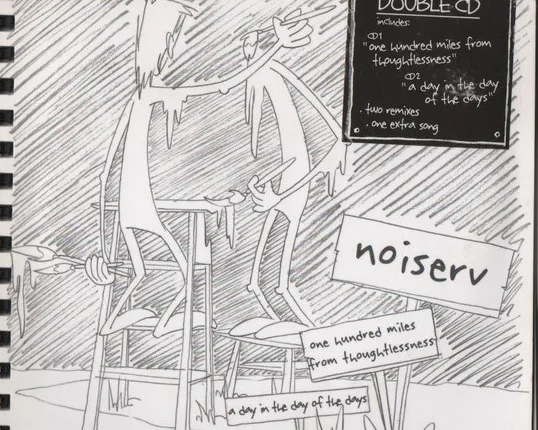 DOUBLE CD
includes:
CD1
"one hundred miles from
thoughtlessness"
CD2
"a day in the day
of the days"
· two remixes
· one extra song
noiserv
one hundred miles
from thoughtlessness
a day in the day of the days